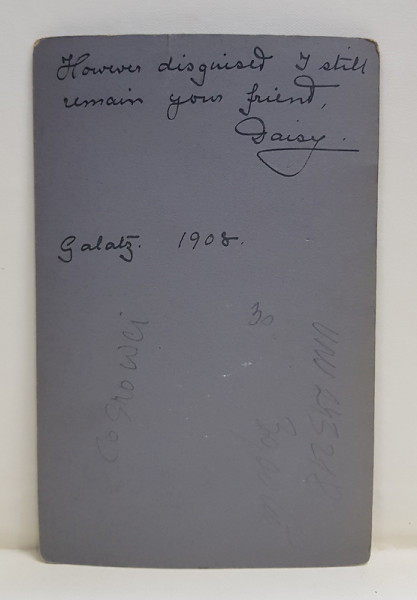 However disguised I still
remain your friend,
Daisy.
Galatz. 1908.
30